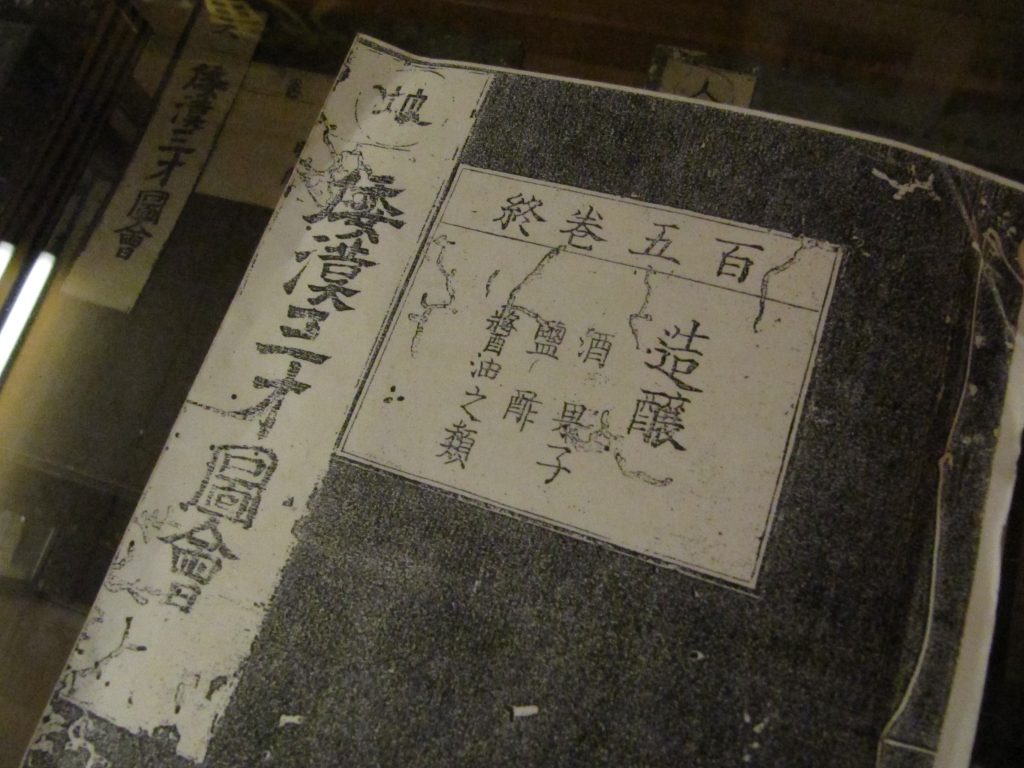 地
倭漢三才圖會
百五卷終
造釀
酒 果子
鹽 酢
醬油之類
倭漢三才圖會
人